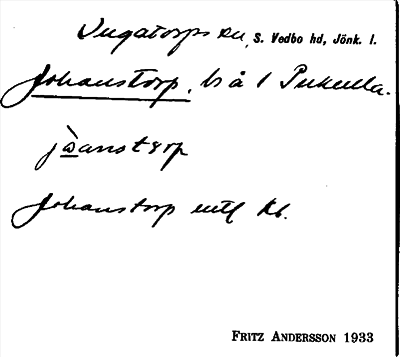 Ingatorps sn, S. Vedbo hd, Jönk. l.
Johanstorp, bs å 1 Pukulla.
jòanstorp
Johanstorp entl kb.
FRITZ ANDERSSON 1933